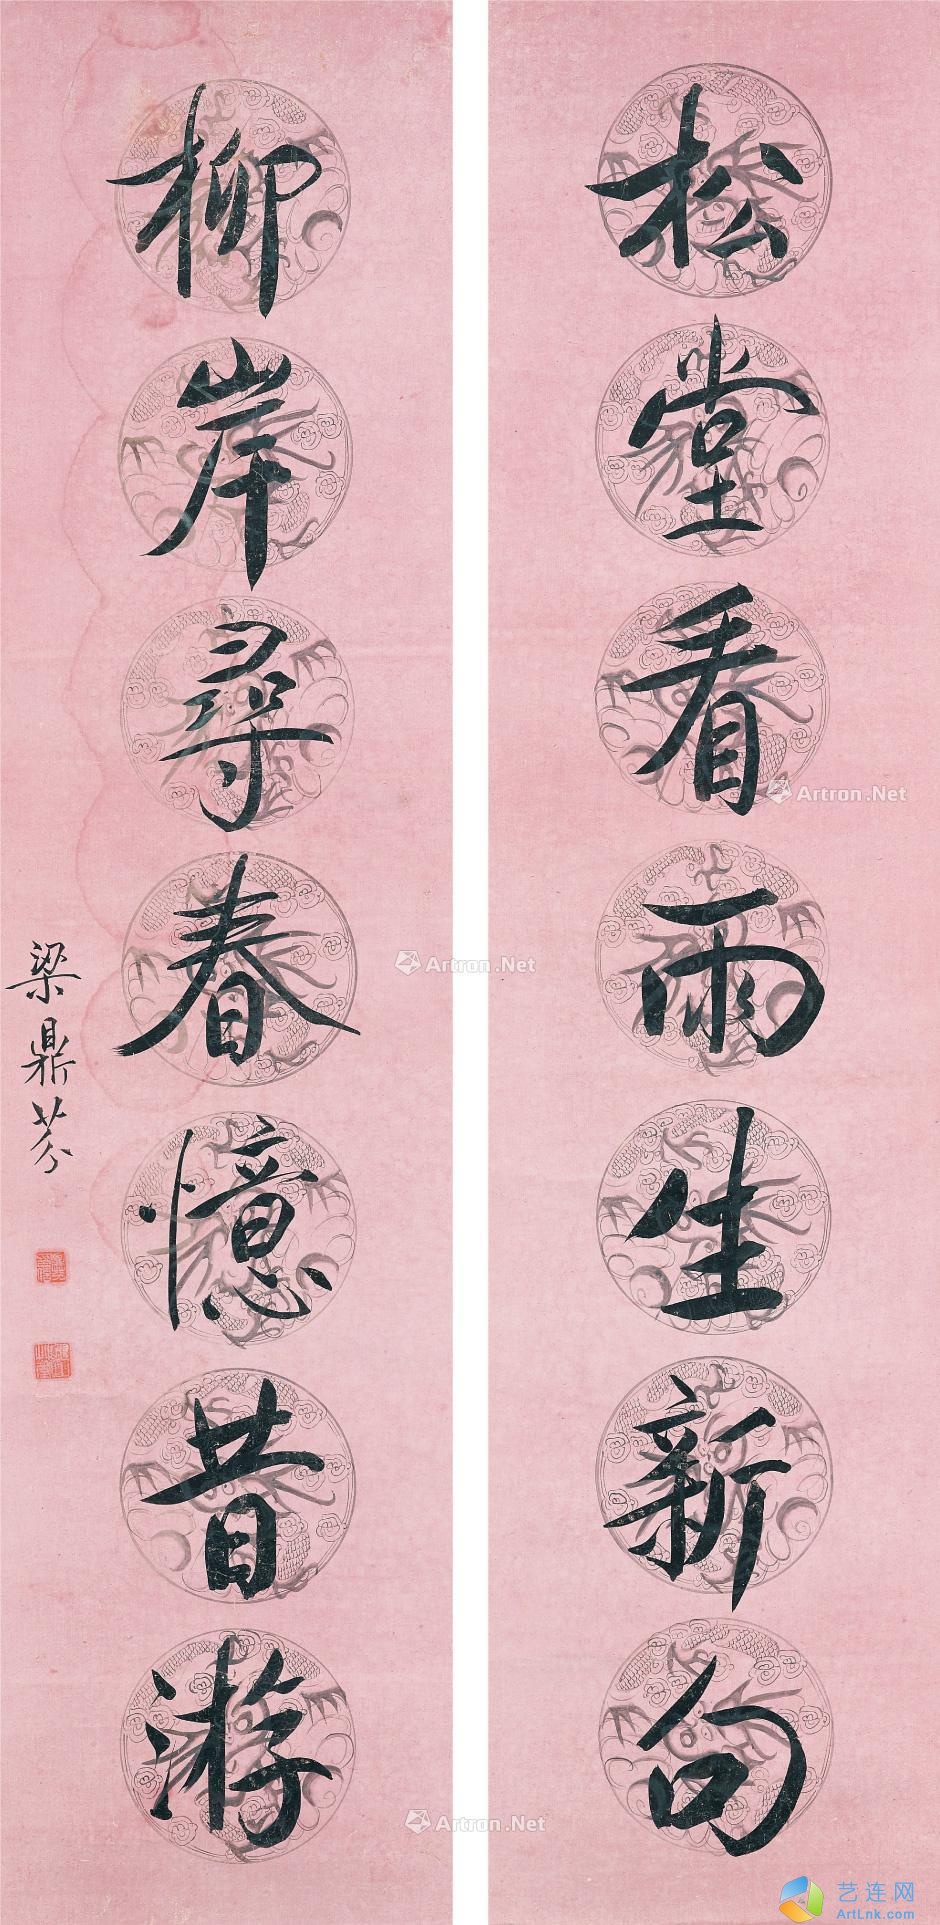 松堂看雨生新句
柳岸尋春憶昔游
梁鼎芬
Artron.Net
Artron.Net
Artron.Net
艺连网
ArtLnk.com